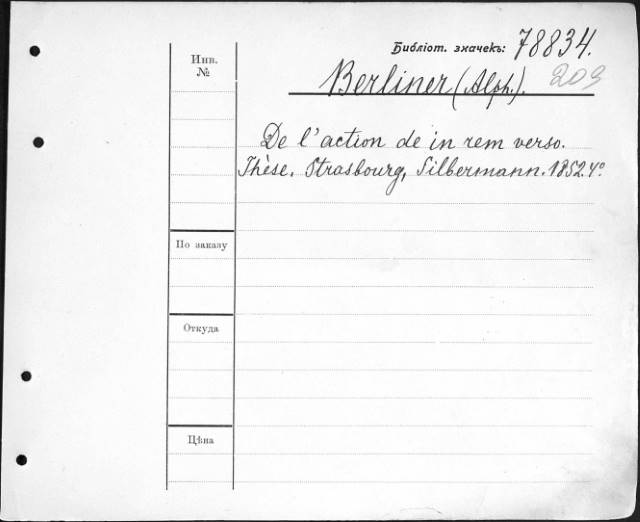 Библіот. значекъ: 78834.
Инв.
№
Berliner (Alph.). 209
De l'action de in rem verso.
Thèse. Strasbourg, Silbermann. 1852. 4°
По заказу
Откуда
Цѣна